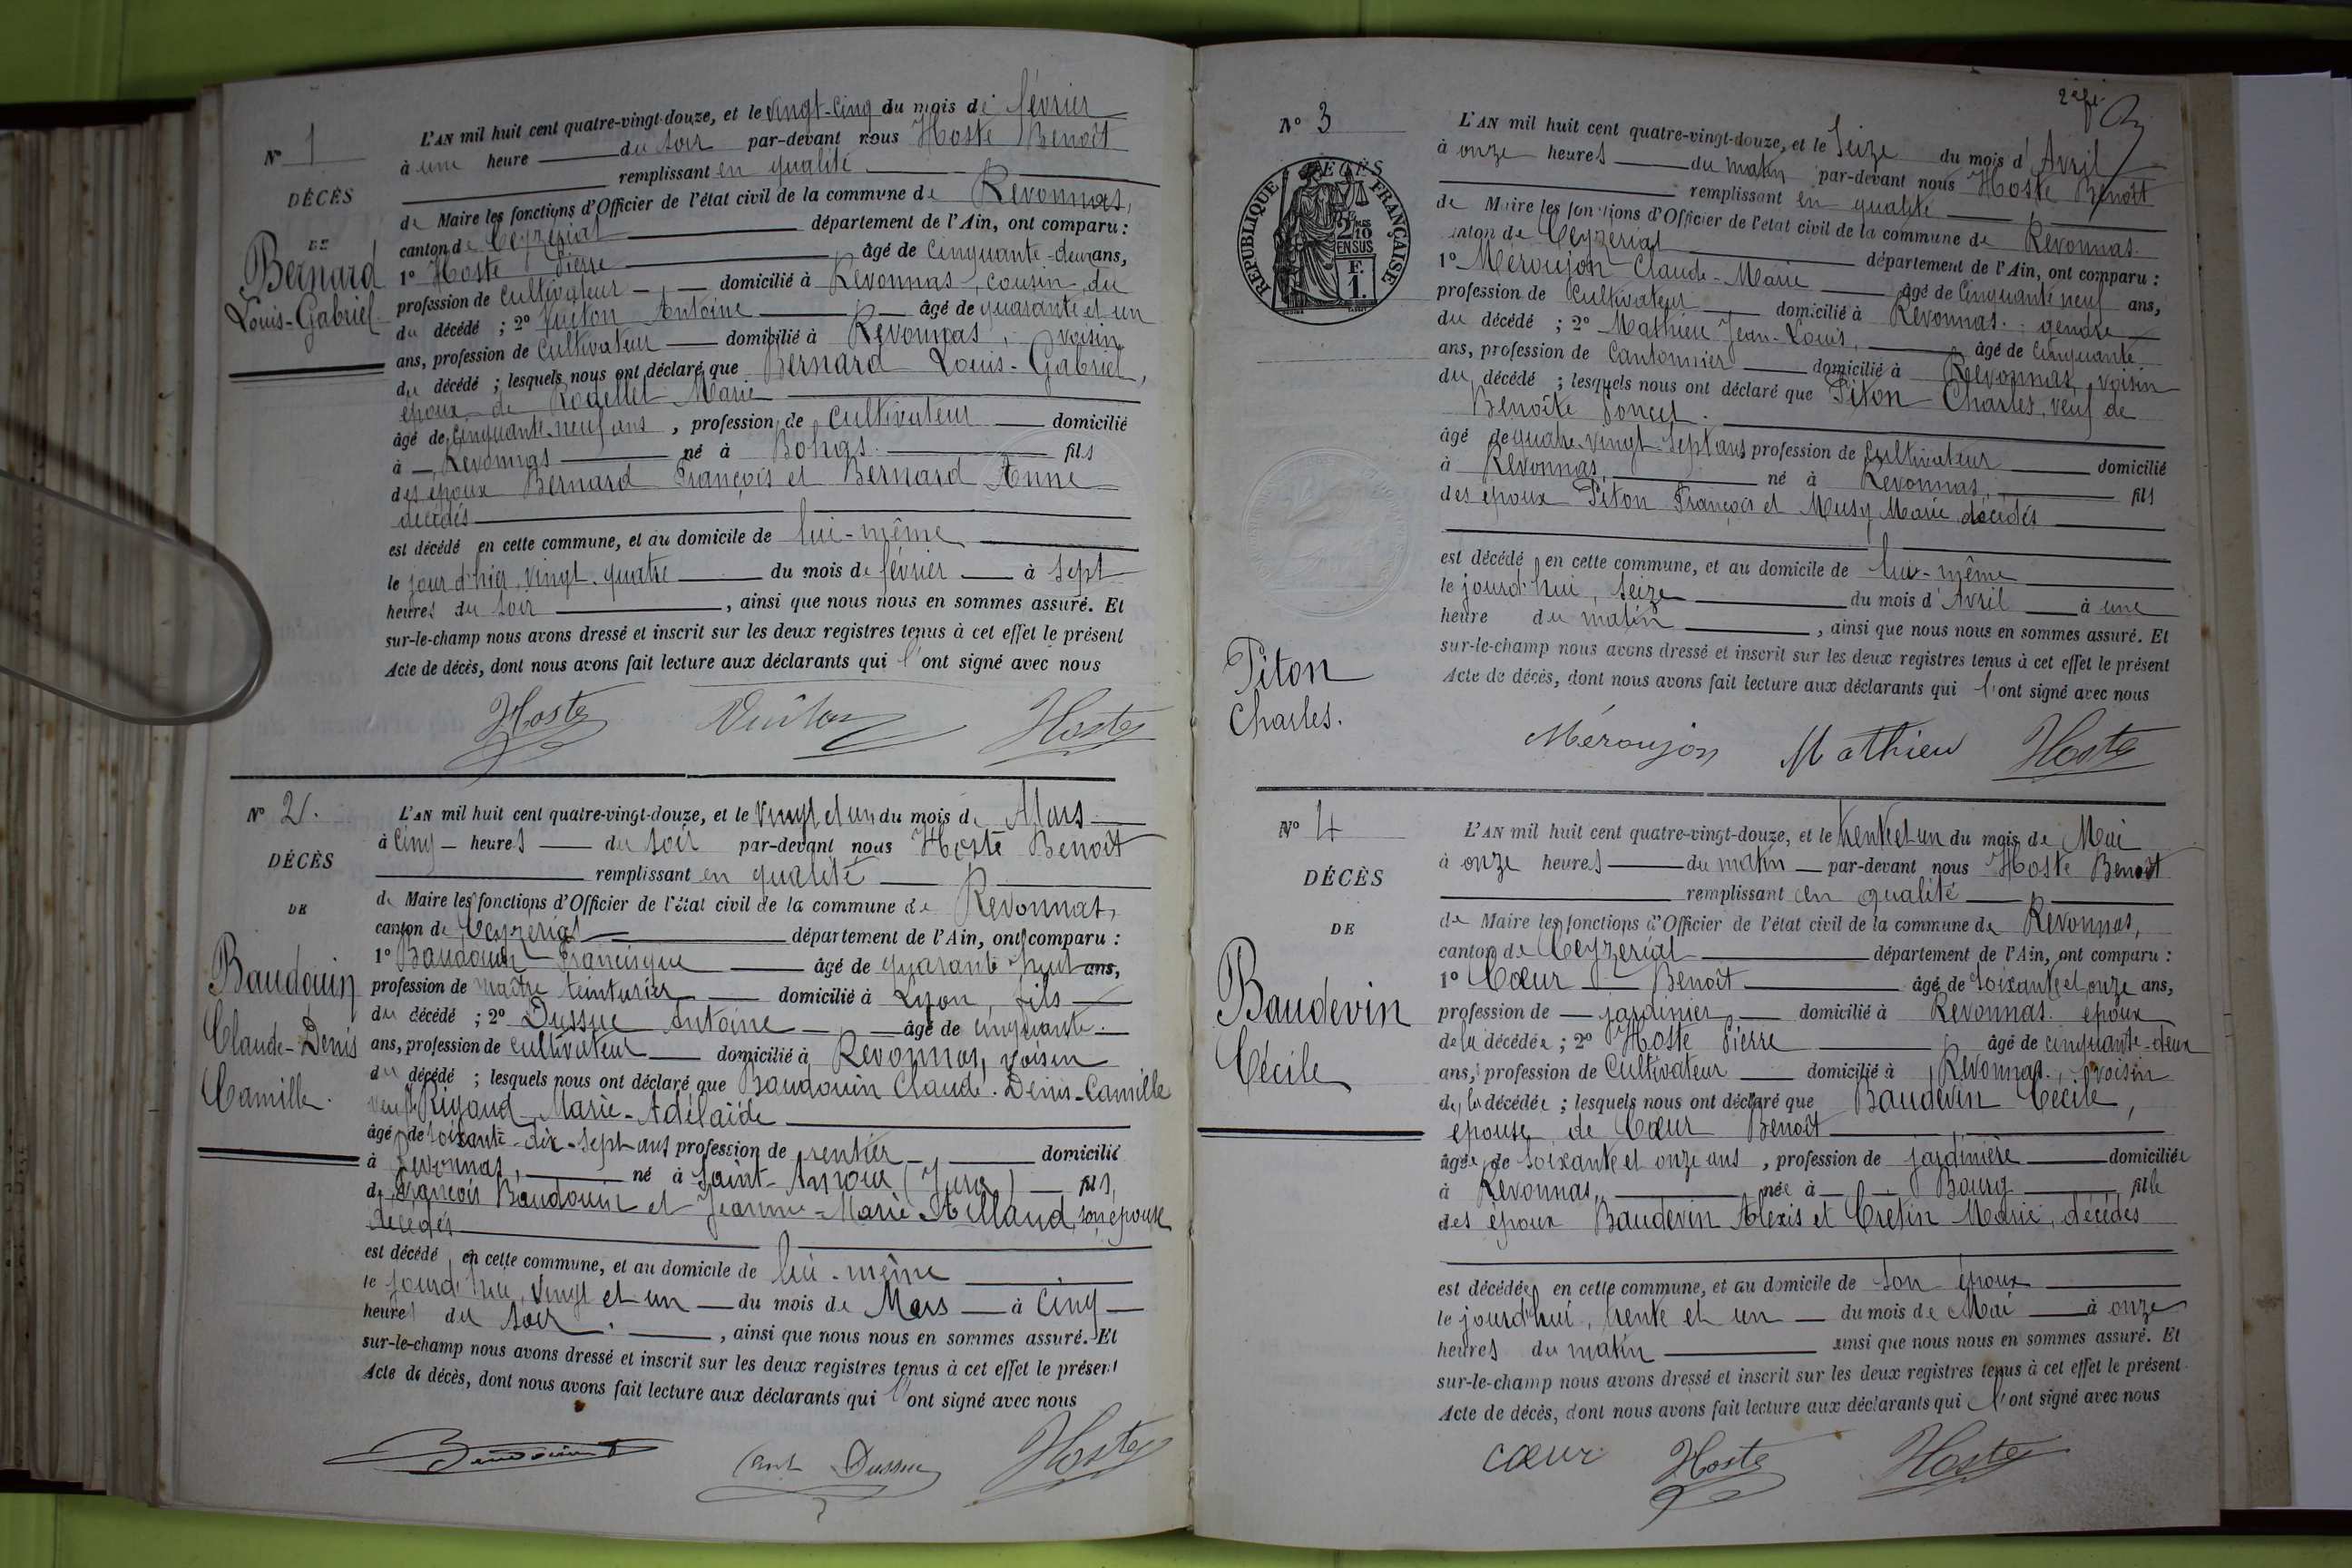 N° 1
DÉCÈS
DE
Bernard
Louis-Gabriel
L'AN mil huit cent quatre-vingt-douze, et le vingt-cinq du mois de février
à une heure du soir par-devant nous Hoste Benoît
remplissant en qualité
de Maire les fonctions d'Officier de l'état civil de la commune de Revonnas,
canton de Ceyzériat département de l'Ain, ont comparu :
1° Hoste Pierre âgé de cinquante-deux ans,
profession de cultivateur domicilié à Revonnas, cousin du
du décédé ; 2° Vuiton Antoine âgé de quarante et un
ans, profession de cultivateur domicilié à Revonnas, voisin
du décédé ; lesquels nous ont déclaré que Bernard Louis-Gabriel,
époux de Rodellet Marie
âgé de cinquante-neuf ans, profession de cultivateur domicilié
à Revonnas né à Bohas fils
des époux Bernard François et Bernard Anne
décédés
est décédé en cette commune, et au domicile de lui-même
le jour d'hier, vingt-quatre du mois de février à sept
heures du soir, ainsi que nous nous en sommes assuré. Et
sur-le-champ nous avons dressé et inscrit sur les deux registres tenus à cet effet le présent
Acte de décès, dont nous avons fait lecture aux déclarants qui l'ont signé avec nous
Hoste Vuiton Hoste
N° 2.
DÉCÈS
DE
Baudouin
Claude-Denis
Camille.
L'AN mil huit cent quatre-vingt-douze, et le vingt et un du mois de Mars
à cinq heures du soir par-devant nous Hoste Benoît
remplissant en qualité
de Maire les fonctions d'Officier de l'état civil de la commune de Revonnas,
canton de Ceyzériat département de l'Ain, ont comparu :
1° Baudouin Francisque âgé de quarante huit ans,
profession de maître teinturier domicilié à Lyon, fils
du décédé ; 2° Dussue Antoine âgé de cinquante
ans, profession de cultivateur domicilié à Revonnas, voisin
du décédé ; lesquels nous ont déclaré que Baudouin Claude-Denis-Camille
veuf de Rigaud Marie-Adélaïde
âgé de soixante-dix-sept ans profession de rentier domicilié
à Revonnas, né à Saint-Amour (Jura) fils,
de François Baudouin et Jeanne-Marie Aillaud, son épouse
décédés
est décédé en cette commune, et au domicile de lui-même
le jourd'hui, vingt et un du mois de Mars à cinq
heures du soir, ainsi que nous nous en sommes assuré. Et
sur-le-champ nous avons dressé et inscrit sur les deux registres tenus à cet effet le présent
Acte de décès, dont nous avons fait lecture aux déclarants qui l'ont signé avec nous
Baudouin ant Dussue Hoste
N° 3
RÉPUBLIQUE FRANÇAISE
2/10
EN SUS
F.
1.
Piton
Charles.
L'AN mil huit cent quatre-vingt-douze, et le Seize du mois d'Avril
à onze heures du matin par-devant nous Hoste Benoît
remplissant en qualité
de Maire les fonctions d'Officier de l'état civil de la commune de Revonnas.
canton de Ceyzériat département de l'Ain, ont comparu :
1° Méroujon Claude-Marie âgé de cinquante neuf ans,
profession de cultivateur domicilié à Revonnas. gendre
du décédé ; 2° Mathieu Jean-Louis, âgé de cinquante
ans, profession de Cantonnier domicilié à Revonnas, voisin
du décédé ; lesquels nous ont déclaré que Piton Charles, veuf de
Benoîte Poncet.
âgé de quatre-vingt-sept ans profession de cultivateur domicilié
à Revonnas, né à Revonnas, fils
des époux Piton François et Musy Marie décédés
est décédé en cette commune, et au domicile de lui-même
le jourd'hui, seize du mois d'Avril à une
heure du matin, ainsi que nous nous en sommes assuré. Et
sur-le-champ nous avons dressé et inscrit sur les deux registres tenus à cet effet le présent
Acte de décès, dont nous avons fait lecture aux déclarants qui l'ont signé avec nous
Méroujon Mathieu Hoste
N° 4
DÉCÈS
DE
Baudevin
Cécile
L'AN mil huit cent quatre-vingt-douze, et le trente et un du mois de Mai
à onze heures du matin par-devant nous Hoste Benoît
remplissant en qualité
de Maire les fonctions d'Officier de l'état civil de la commune de Revonnas,
canton de Ceyzériat département de l'Ain, ont comparu :
1° Cœur Benoît âgé de soixante et onze ans,
profession de jardinier domicilié à Revonnas. époux
de la décédée ; 2° Hoste Pierre âgé de cinquante-deux
ans, profession de Cultivateur domicilié à Revonnas, voisin
de la décédée ; lesquels nous ont déclaré que Baudevin Cécile,
épouse de Cœur Benoît
âgée de soixante et onze ans, profession de jardinière domiciliée
à Revonnas, née à Bourg fille
des époux Baudevin Alexis et Cretin Marie, décédés
est décédée en cette commune, et au domicile de son époux
le jourd'hui, trente et un du mois de Mai à onze
heures du matin ainsi que nous nous en sommes assuré. Et
sur-le-champ nous avons dressé et inscrit sur les deux registres tenus à cet effet le présent
Acte de décès, dont nous avons fait lecture aux déclarants qui l'ont signé avec nous
cœur Hoste Hoste